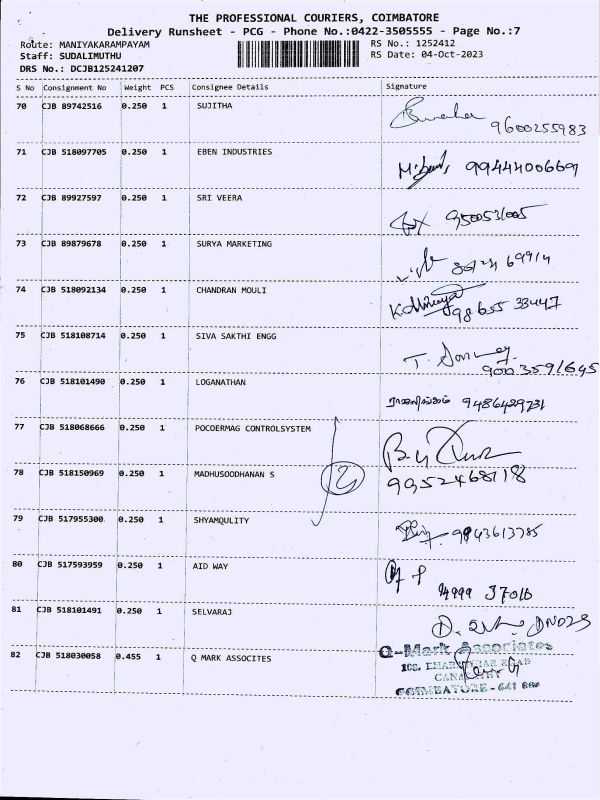 THE PROFESSIONAL COURIERS, COIMBATORE
Delivery Runsheet - PCG - Phone No.:0422-3505555 - Page No.:7
Route: MANIYAKARAMPAYAM RS No.: 1252412
Staff: SUDALIMUTHU RS Date: 04-Oct-2023
DRS No.: DCJB125241207
S No Consignment No Weight PCS Consignee Details Signature
70 CJB 89742516 0.250 1 SUJITHA
9600255983
71 CJB 518097705 0.250 1 EBEN INDUSTRIES
9944400669
72 CJB 89927597 0.250 1 SRI VEERA
73 CJB 89879678 0.250 1 SURYA MARKETING
74 CJB 518092134 0.250 1 CHANDRAN MOULI
98655 33447
75 CJB 518108714 0.250 1 SIVA SAKTHI ENGG
9003591645
76 CJB 518101490 0.250 1 LOGANATHAN
ராஜலிங்கம் 9486429731
77 CJB 518068666 0.250 1 POCOERMAG CONTROLSYSTEM
78 CJB 518150969 0.250 1 MADHUSOODHANAN S
9952468118
79 CJB 517955300 0.250 1 SHYAMQULITY
9843613785
80 CJB 517593959 0.250 1 AID WAY
81 CJB 518101491 0.250 1 SELVARAJ
82 CJB 518030058 0.455 1 Q MARK ASSOCITES
Q-Mark Associates
COIMBATORE - 641